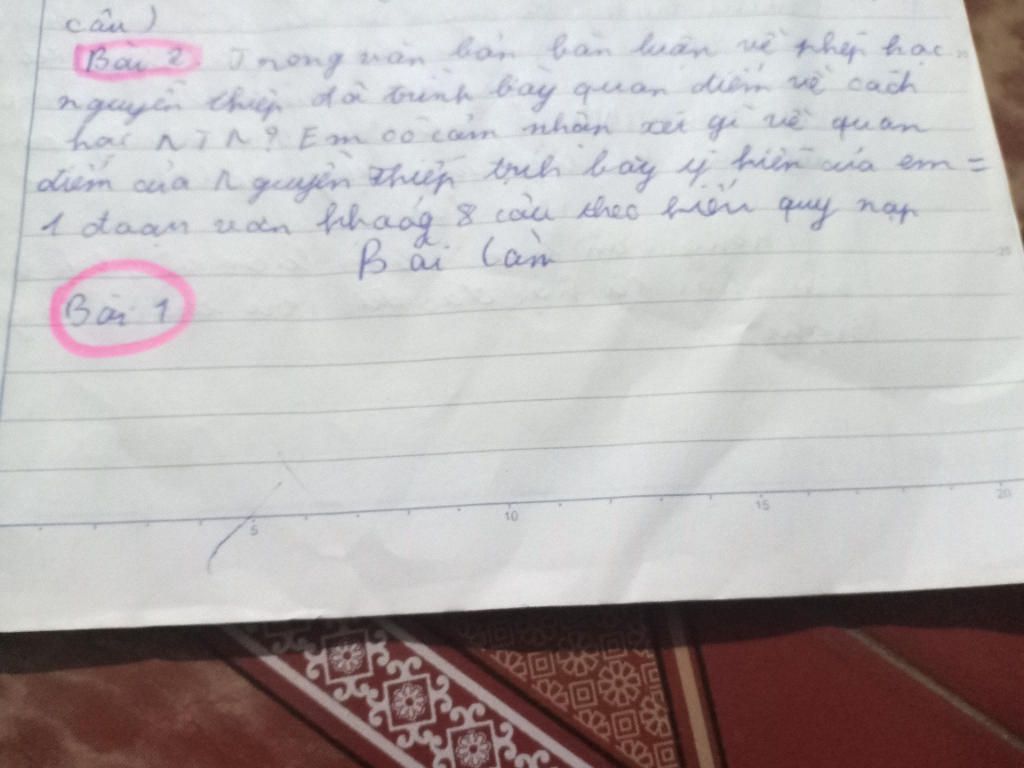 câu)
Bài 2. Trong văn bản bàn luận về phép học
nguyễn thiếp đã trình bày quan điểm về cách
học NTN? Em có cảm nhận xét gì về quan
điểm của Nguyễn Thiếp trình bày ý kiến của em =
1 đoạn văn khoảg 8 câu theo kiểu quy nạp
Bài làm
Bài 1
5 10 15 20
25